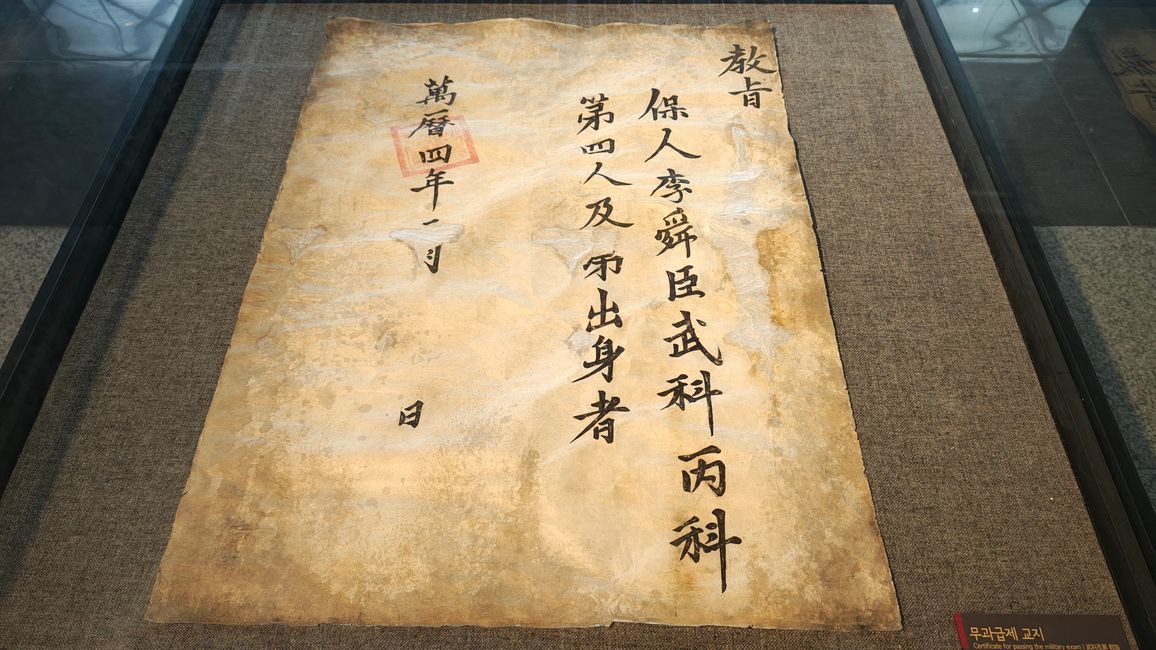 教旨
保人李舜臣武科丙科
第四人及㐧出身者
萬暦四年一月 日
무과급제 교지
Certificate for passing the military exam